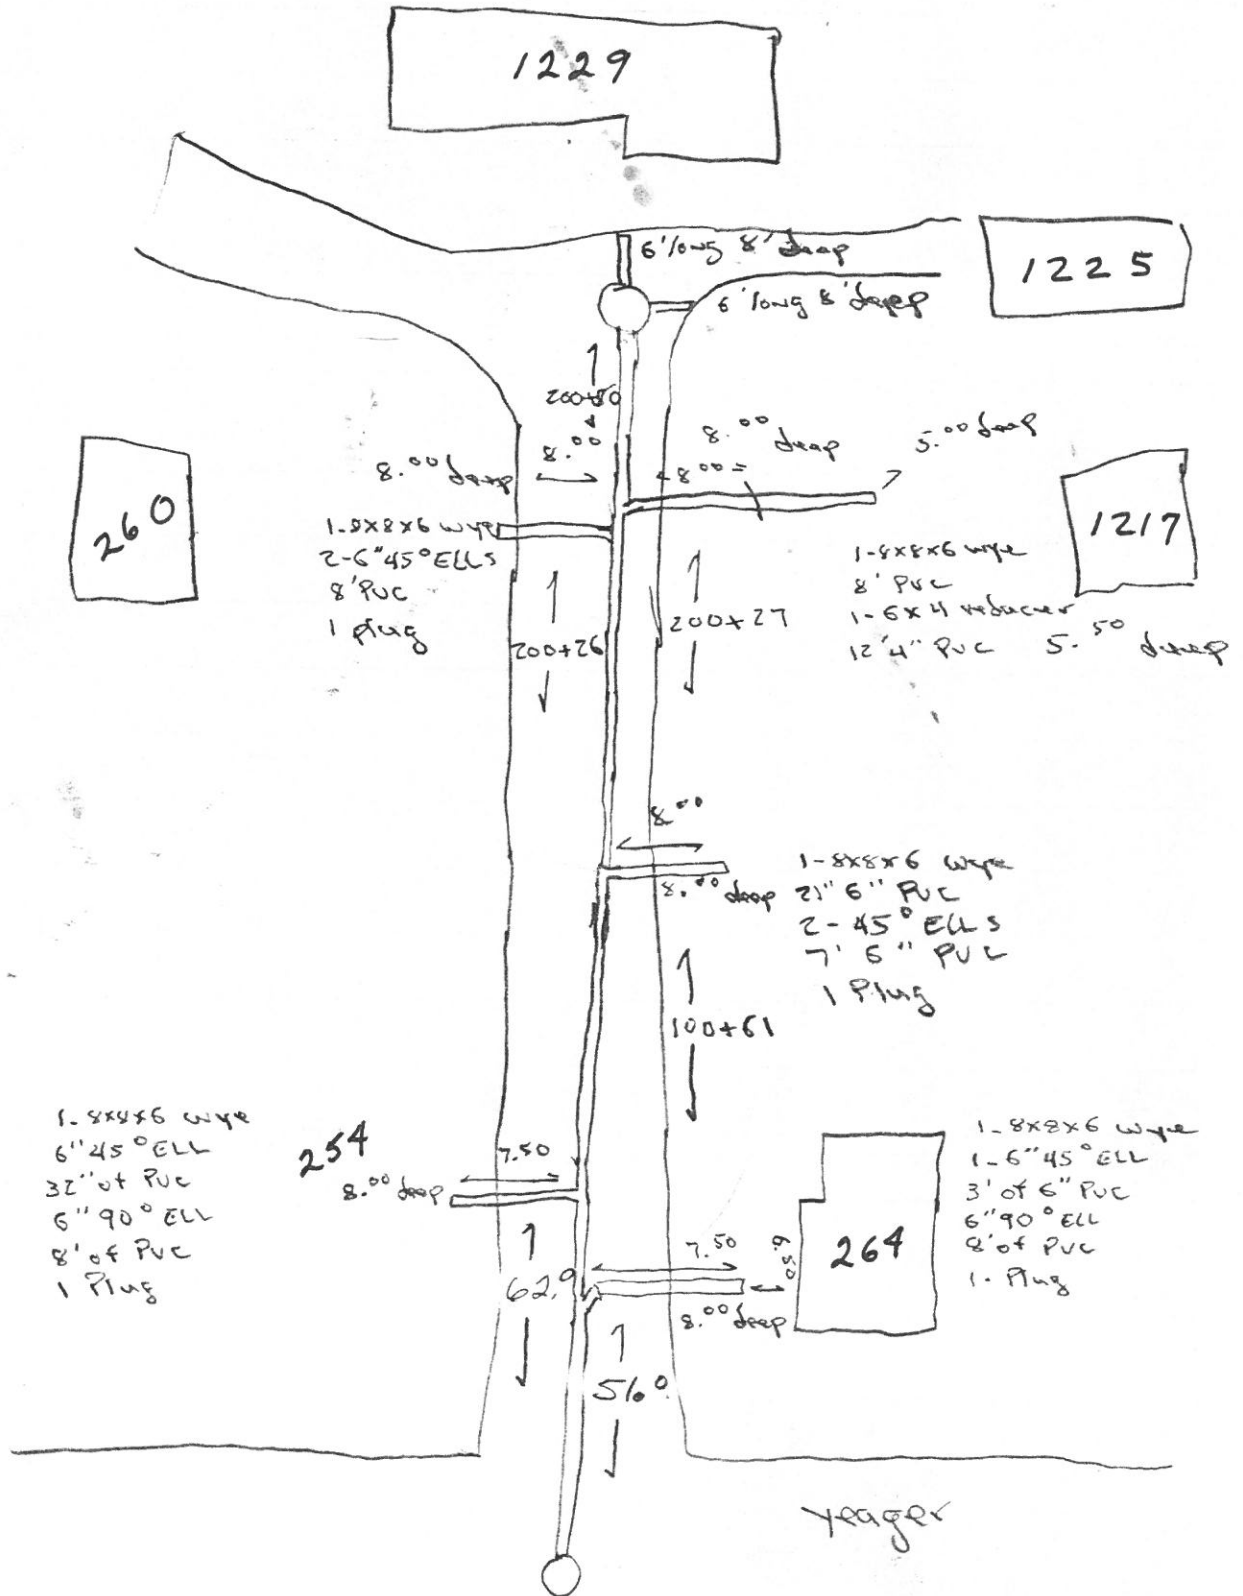 1229
6' long 8' deep
1225
6' long 8' deep
200+50
8.00 deep
8.00
8.00 deep
5.00 deep
8.00
260
1-8x8x6 wye
2-6" 45° ELLS
8' PVC
1 plug
1217
1-8x8x6 wye
8' PVC
1-6x4 reducer
12' 4" PVC 5.50 deep
200+26
200+27
8.00
8.00 deep
1-8x8x6 wye
21" 6" PVC
2-45° ELLS
7' 6" PVC
1 Plug
100+61
1-8x8x6 wye
6" 45° ELL
32" of PVC
6" 90° ELL
8' of PVC
1 Plug
254
7.50
8.00 deep
1-8x8x6 wye
1-6" 45° ELL
3' of 6" PVC
6" 90° ELL
8' of PVC
1-Plug
7.50
6.50
264
8.00 deep
62.9
56.0
Yeager